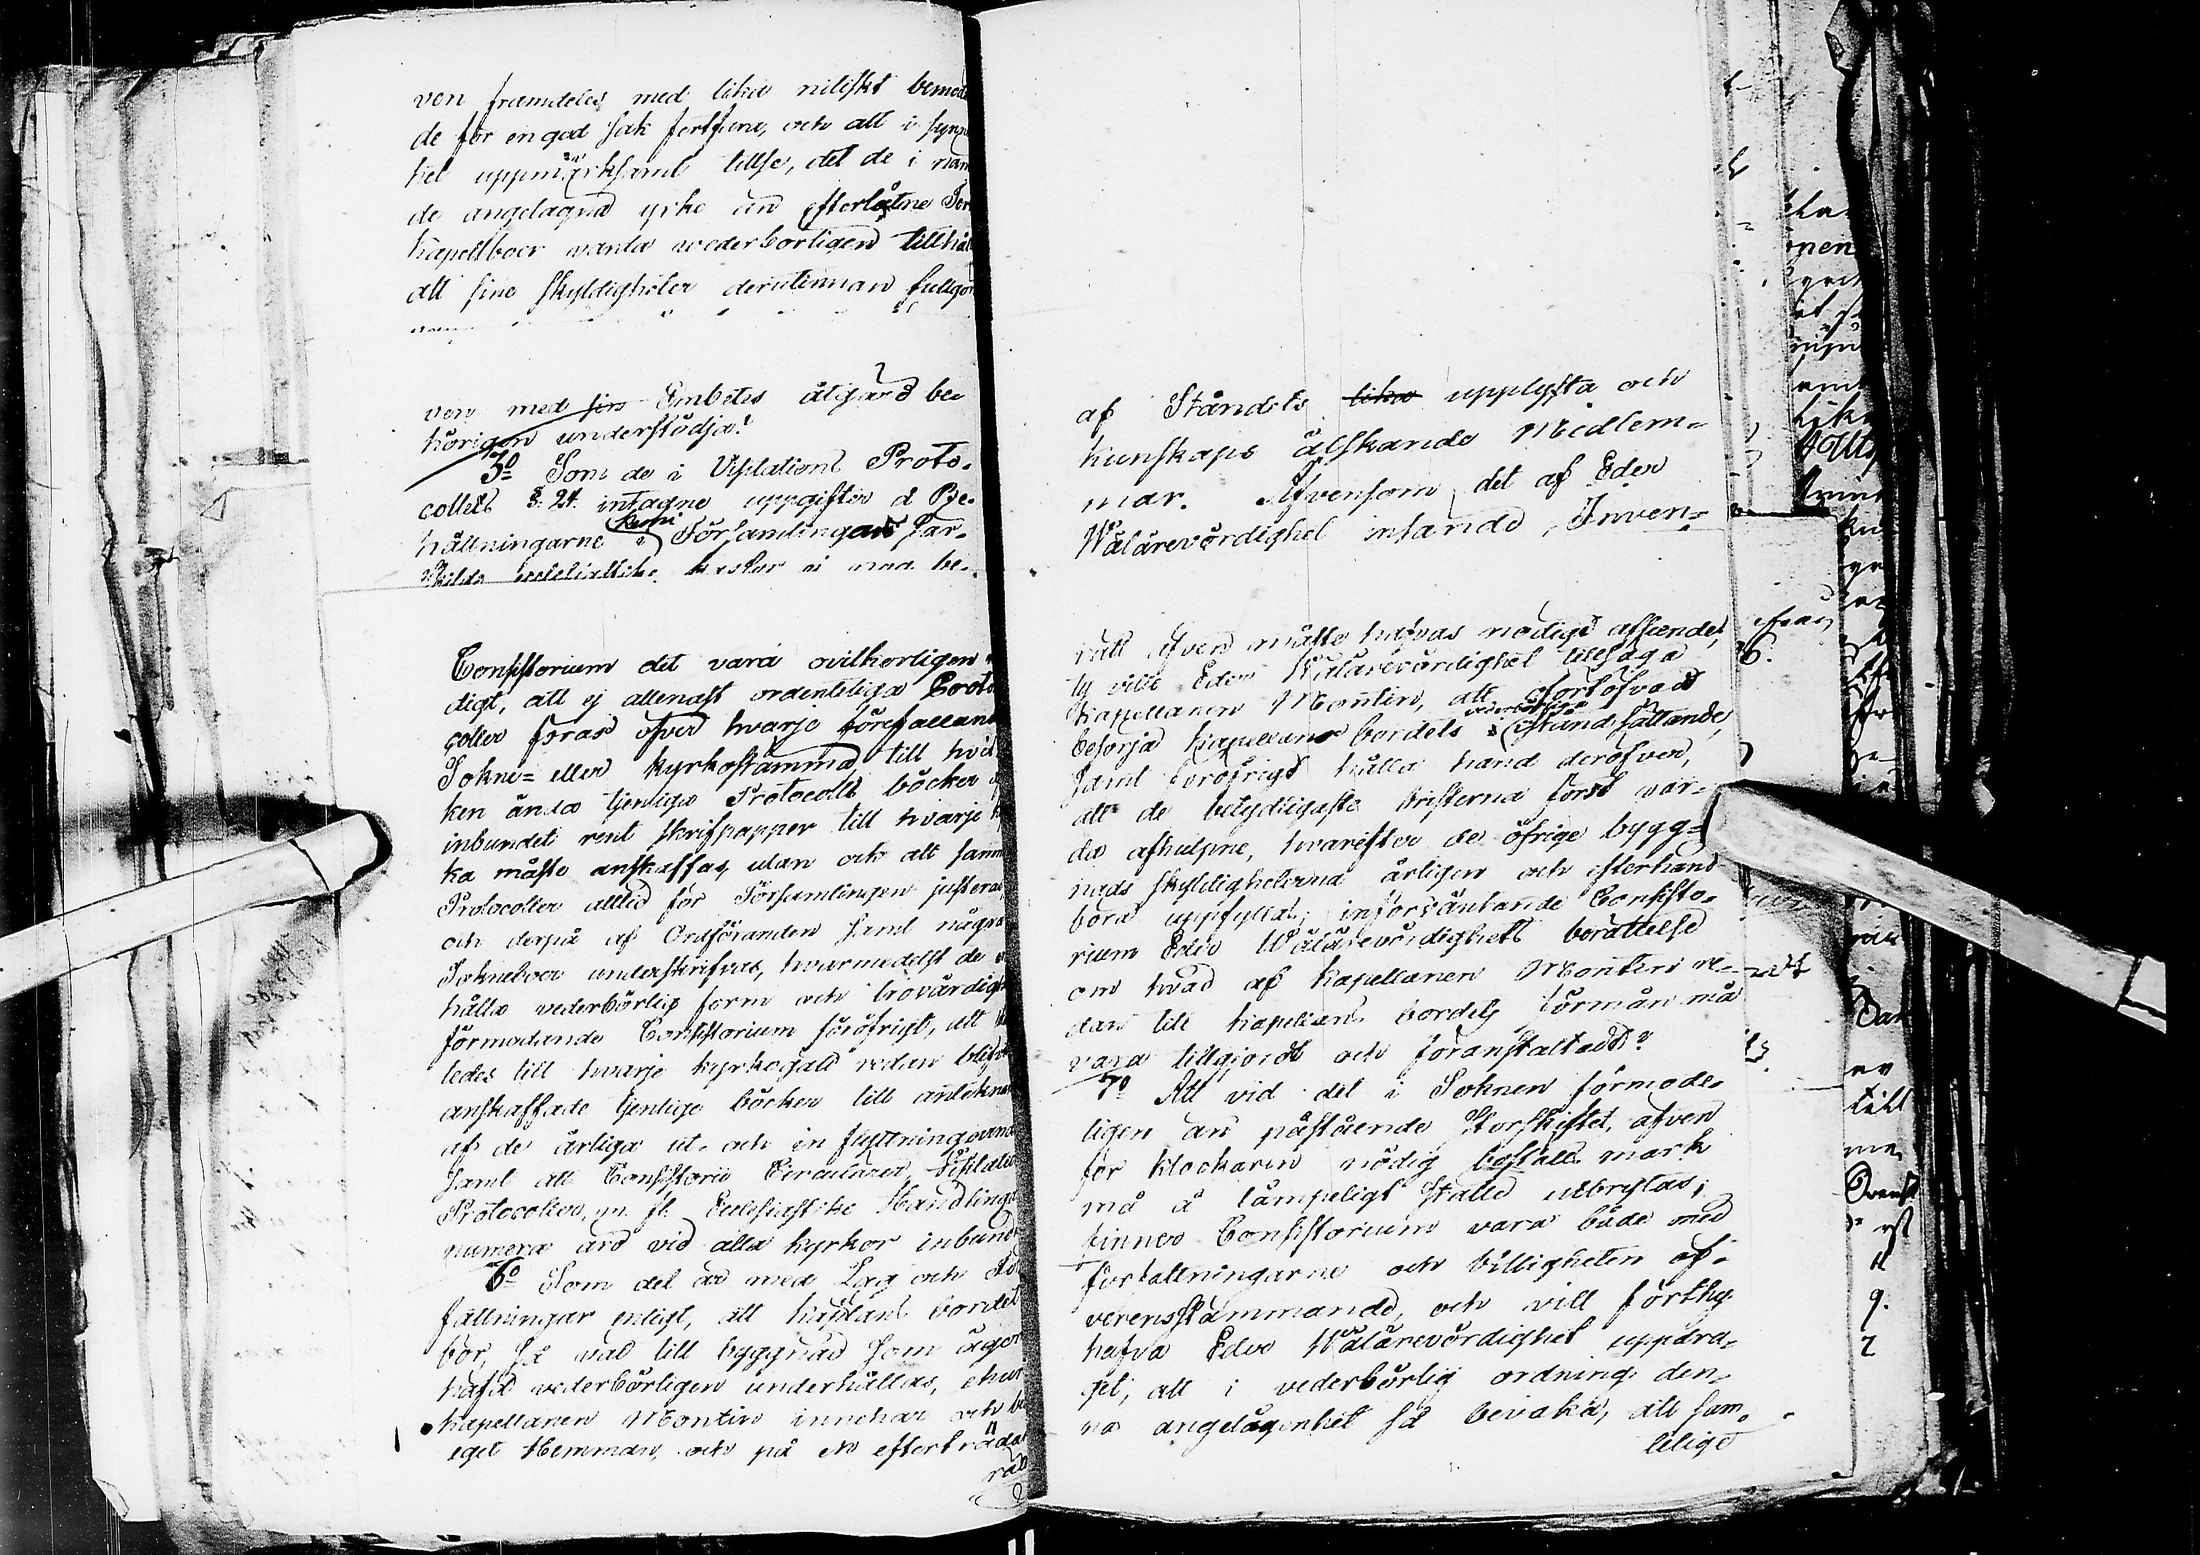 ven framdeles med lika nitiskt bemödan
de för en god sak fortfara, och att i synner
het uppmärksamt tillse, det de i näm
de angelägna yrke än efterlåtne
Kapellboer varda wederbörligen tillhål
att sine skyldigheter derutinnan fullgöra
ven med sin Embetes åtgärd be-
hörigen understödja.
3o Som de i Visitations Proto-
collets §. 24. intagne uppgifter å Be-
hållningarne i Församlingens sär-
skilde ecclesiastike kassor ei må be-
Consistorium det vara ovilkorligen
digt, att ej allenast ordenteliga Proto
coller föras öfver hvarje förefallande
Sokne- eller kyrkostämma till hvil
ken ända tjenliga Protocolls böcker af
inbundet rent skrifpapper till hvarje kyr
ka måste anskaffas, utan och att samma
Protocoller alltid för Församlingen justeras
och derpå af Ordföranden samt några
Sokneboer underskrifvas, hvarmedelst de er
hålla vederbörlig form och trovärdighet
förmodande Consistorium föröfrigt, att
ledes till hvarje kyrkogäld redan blifvit
anskaffade tjenlige böcker till antekning
af de årliga ut- och in flyttningarna
samt att Consistorii Circulairer, Visitations
Protocoller, m. fl. Ecclesiastike Handlingar
numera äro vid alla kyrkor inbundne
6o Som det är med Lag och för
fattningar enligt, att kapellans bordet
bör, så väl till byggnad som ägor
häfd vederbörligen underhållas, ehuru
Kapellanen Montin innehar och be
eget Hemman, och på en efterträdar
rätt
af Ståndets lika upplysta och
kunskaps älskande Medlem-
mar. Äfvensom det af Eder
Wälärevördighet insände, Inven-
rätt äfven måste hafvas nödigt afseende,
ty ville Eder Wälärevördighet tillsäga
Kapellanen Montin, att oförtöfvadt
vederbörligen
besörja Kapellans bordets i stånd sättande,
samt föröfrigt hålla hand deröfver,
att de betydligaste bristerna först var-
da afhulpne, hvarefter de öfrige bygg-
nads skyldigheterna årligen och efterhand
böra uppfyllas; inforväntande Consisto-
rium Eder Wälärevördighets berättelse
om hvad af Kapellanen Montin re-
dan till kapellans bordets förmån må
vara tillgjordt och föranstaltadt?
7o Att vid det i Soknen förmode-
ligen än påstående Storskiftet, äfven
för klockaren nödig boställs mark
må å lämpeligt ställe utbrytas;
finner Consistorium vara både med
författningarne och billigheten öf-
verensstämmande, och vill förthy
hafva Eder Wälärevördighet uppdra-
git, att i vederbörlig ordning den-
na angelägenhet så bevaka, att sam-
telige